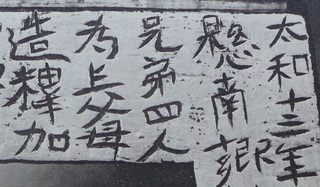 太和十三年
懸南郷
兄弟四人
為上父母
造釋加